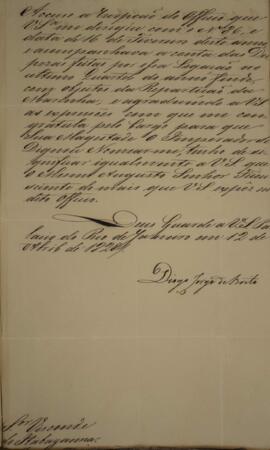 Accuso a recepção do Officio que
V.S. me dirigio com o Nº 26, e
data de 12 de Fevereiro deste anno
e acompanhava a conta das Des
pezas feitas por essa Legação no
ultimo Quartel do anno findo,
com objectos da Repartição da
Marinha, e agradecendo a V.S.
as expressões com que me con
gratula pelo Cargo para que
Sua Magestade O Imperador Se
Dignou Nomear-me, tenho de si
gnificar igualmente a V.S. que
O Mesmo Augusto Senhor Ficou
sciente do mais que V.S. expôz no
dito Officio.
Deus Guarde a V.S. Pa
lacio do Rio de Janeiro em 12 de
Abril de 1827.
Diogo Jorge de Brito
Snr. Visconde
de Itabayanna